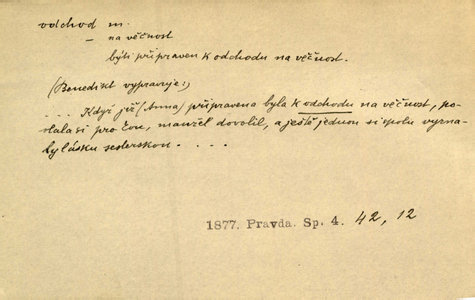 odchod m.
— na věčnost
býti připraven k odchodu na věčnost.
(Benedikt vypravuje:)
.... Když již (Anna) připravena byla k odchodu na věčnost, po-
slala si pro Evu, manžel dovolil, a ještě jednou si spolu vyzna-
ly lásku sesterskou. . . .
1877. Pravda. Sp. 4. 42, 12